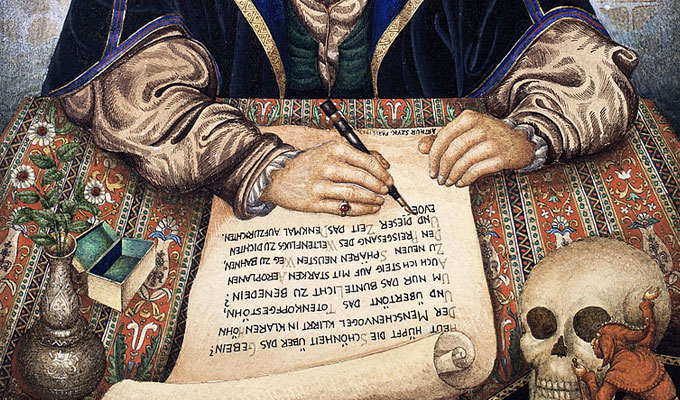 HEUT HÜPFT DIE SCHÖNHEIT ÜBER DAS GEBEIN?
DER MENSCHENVOGEL KLIRRT IN KLAREN HÖHN
UND ÜBERTÖNT DAS TOTENKOPFGESTÖHN,
UM NUR DAS BUNTE LICHT ZU BENEDEIN?
AUCH ICH STEIG AUF MIT STARKEN AEROPLANEN
ZU NEUEN SPHÄREN WEG ZU BAHNEN,
DEN PREISGESANG DES WELTENFLUG ZU DICHTEN
UND DIESER ZEIT DAS DENKMAL AUFZURICHTEN.
EVOE
ARTHUR SZYK, PARIS